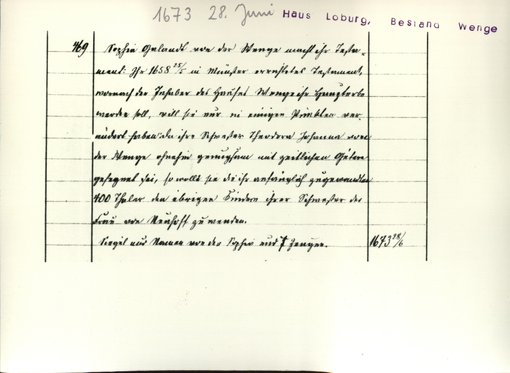 1673 28. Juni Haus Loburg, Bestand Wenge
469 Sophia Gelandt von der Wenge macht ihr Testa-
ment. Ihr 1658 25/5 in Münster errichtetes Testament,
wonach der Inhaber des Hauses Wenge ihr Haupterbe
werden soll, will sie nur in einigen Punkten ver-
ändert haben da ihre Schwester Theodora Johanna von
der Wenge ohnehin genugsam mit zeitlichen Gütern
gesegnet sei, so wolle sie die ihr anfänglich zugewandten
400 Thaler den übrigen Kindern ihrer Schwester der
Frau von Neuhoff zuwenden.
Siegel und Namen von der Sophia und 7 Zeugen. 1673 28/6